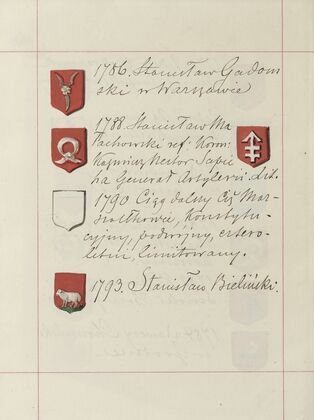 1786. Stanisław Gadom
ski w Warszawie
1788. Stanisław Ma
łachowski ref. Koron:
Kazimierz Nestor, Sapie
ha Generał Artyleryi Lit.
1790 Ciąg dalszy Ciż Mar-
szałkowie, konstytu-
cyjny, podwójny, cztero-
letni, limitowany.
1793. Stanisław Bieliński.